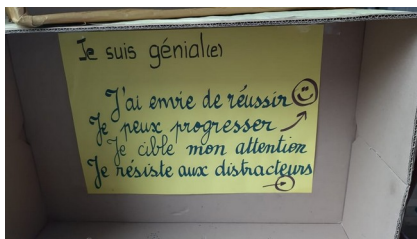 Je suis génial(e)
J'ai envie de réussir
Je peux progresser
Je cible mon attention
Je résiste aux distracteurs